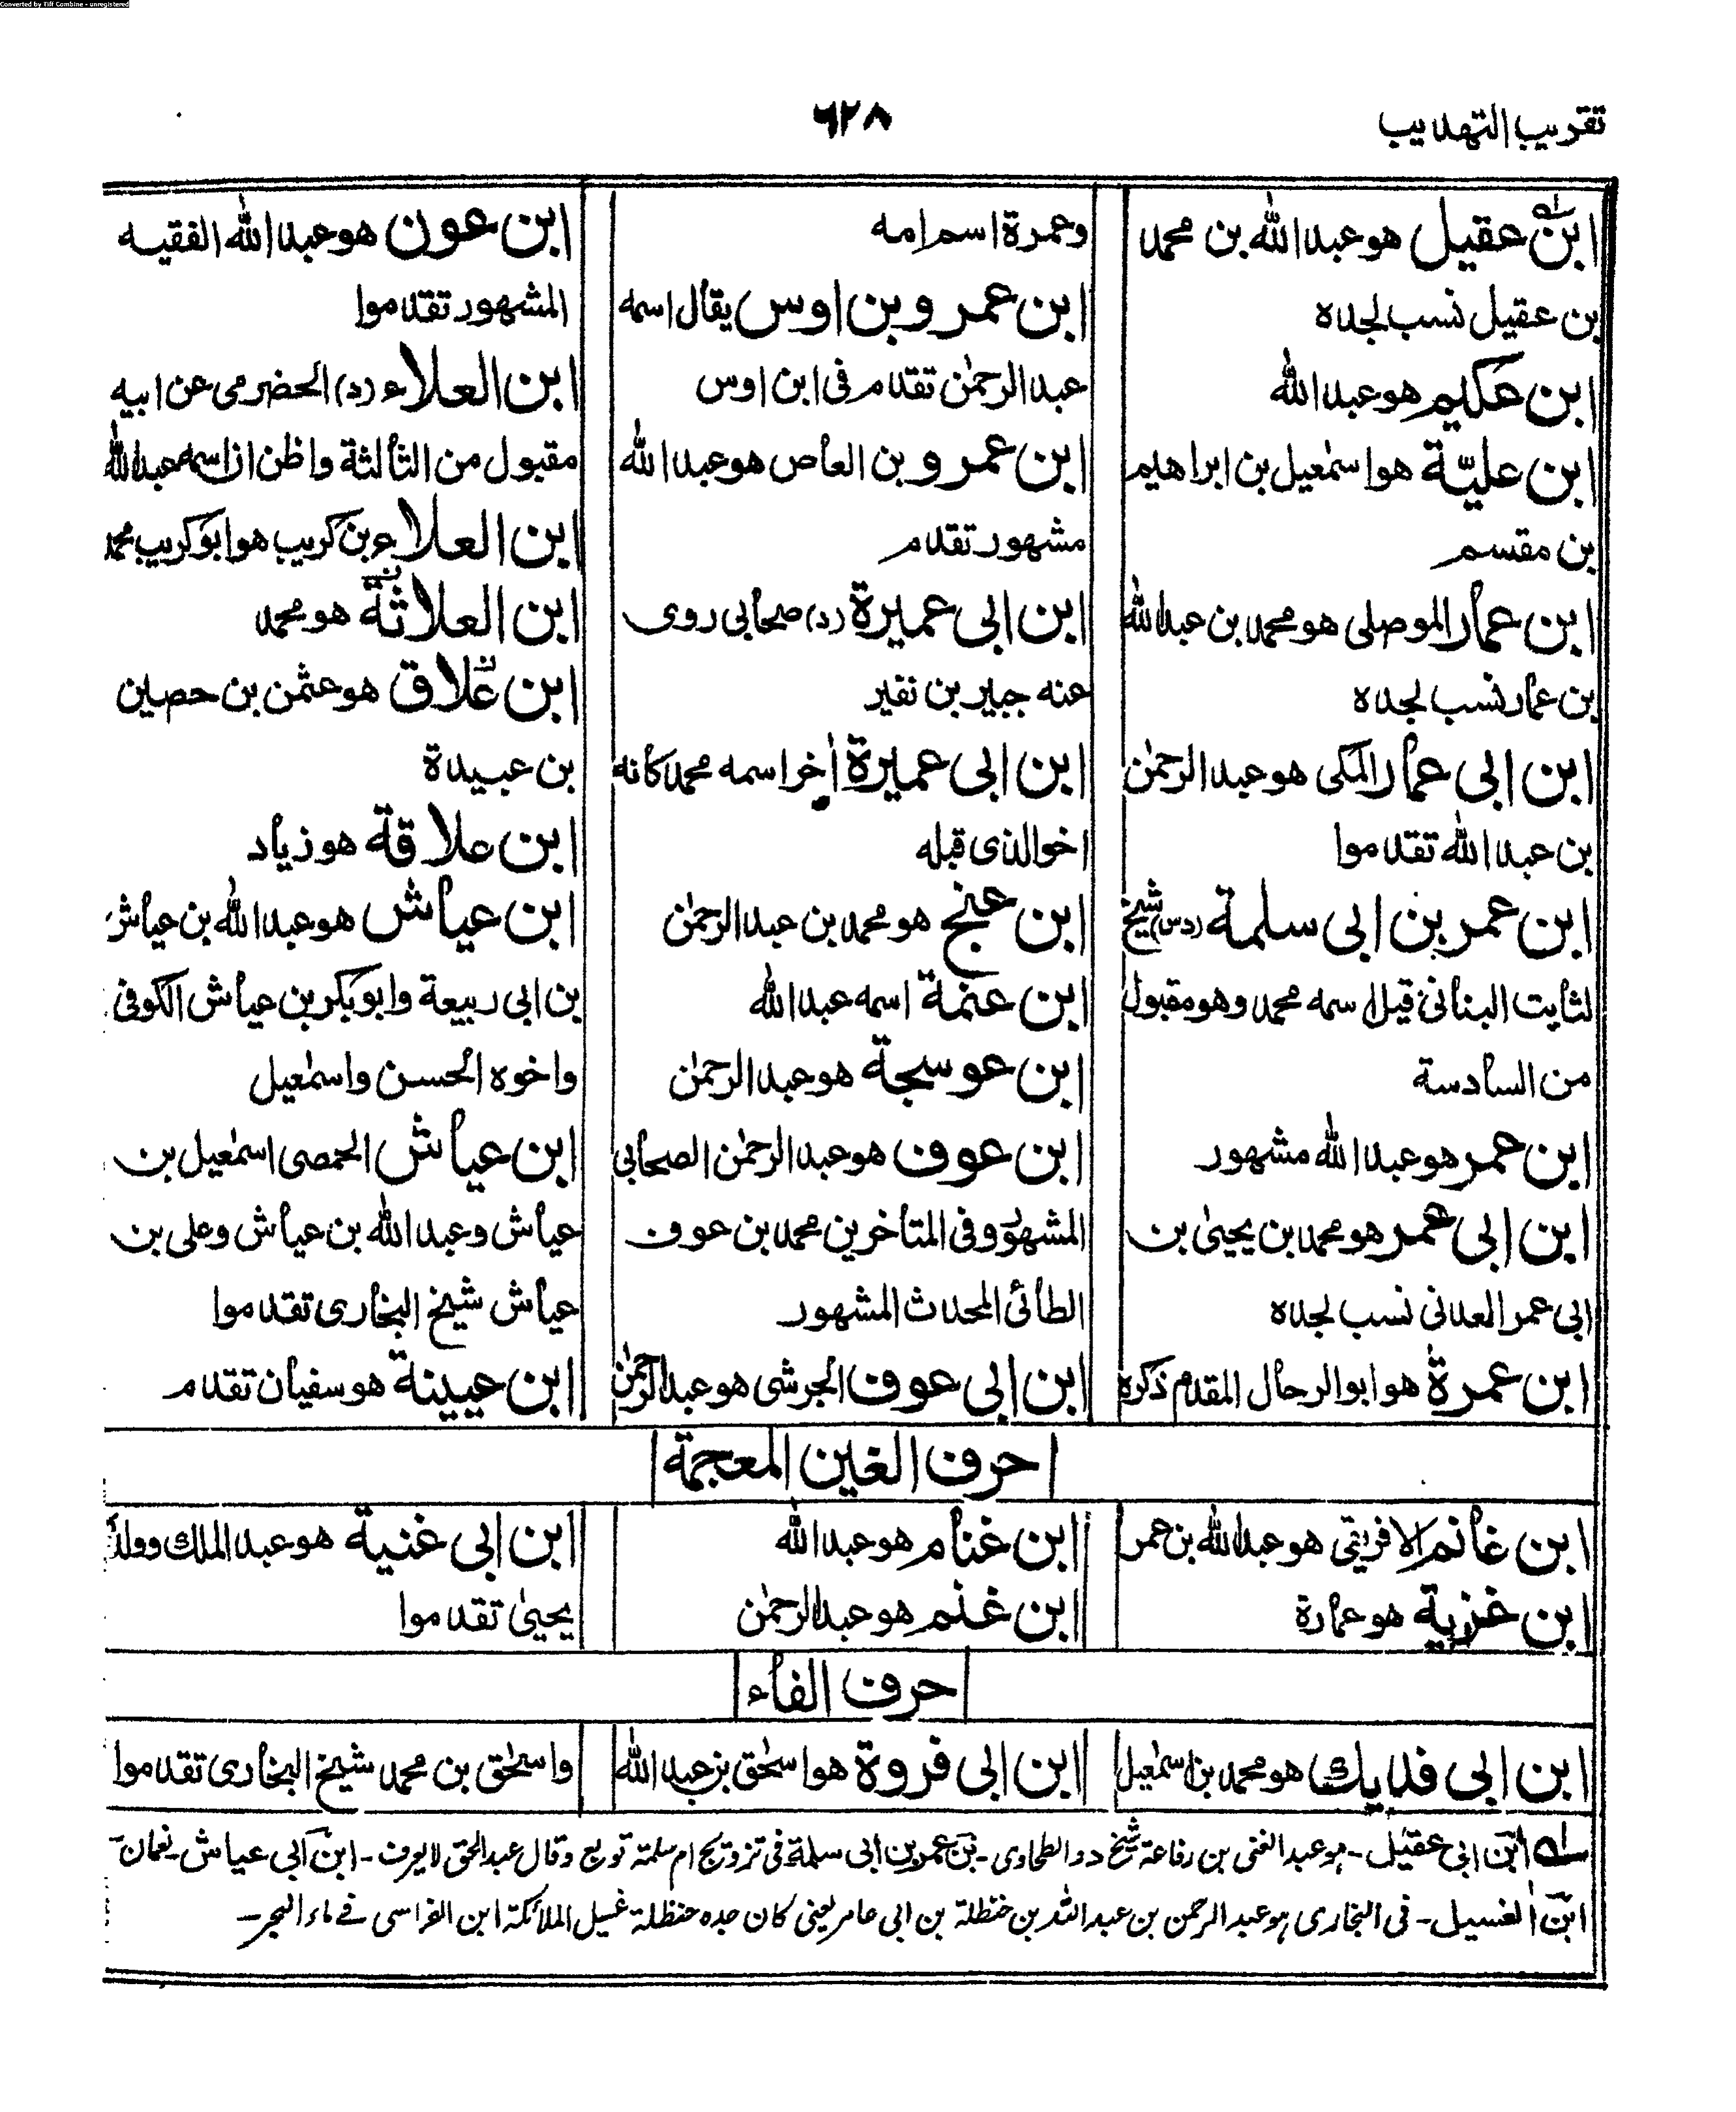 Converted by Tiff Combine - unregistered
تقريب التهذيب
٦٢٨
ابن عقيل هو عبد الله بن محمد
بن عقيل نسب لجده
ابن عكيم هو عبد الله
ابن عليّة هو اسمٰعيل بن ابراهيم
بن مقسم
ابن عمار الموصلى هو محمد بن عبد الله
بن عمار نسب لجده
ابن ابى عمار المكى هو عبد الرحمٰن
بن عبد الله تقدموا
ابن عمر بن ابى سلمة (دس) شيخ
لثابت البنانى قيل اسمه محمد وهو مقبول
من السادسة
ابن عمر هو عبد الله مشهور
ابن ابى عمر هو محمد بن يحيىٰ بن
ابى عمر العدنى نسب لجده
ابن عمرة هو ابو الرحال المقدم ذكره
وعمرة اسم امه
ابن عمرو بن اوس يقال اسمه
عبد الرحمٰن تقدم فى ابن اوس
ابن عمرو بن العاص هو عبد الله
مشهور تقدم
ابن ابى عميرة (د) صحابى روى
عنه جبير بن نفير
ابن ابى عميرة اٰخر اسمه محمد كانه
اخو الذى قبله
ابن عنج هو محمد بن عبد الرحمٰن
ابن عنمة اسمه عبد الله
ابن عوسجة هو عبد الرحمٰن
ابن عوف هو عبد الرحمٰن الصحابى
المشهور وفى المتأخرين محمد بن عوف
الطائى المحدث المشهور
ابن ابى عوف الجرشى هو عبد الرحمٰن
ابن عون هو عبد الله الفقيه
المشهور تقدموا
ابن العلاء (د) الحضرمى عن ابيه
مقبول من الثالثة واظن ان اسمه عبد الله
ابن العلاء بن كريب هو ابو كريب محمد
ابن العلاثة هو محمد
ابن علاق هو عثمٰن بن حصين
بن عبيدة
ابن علاقة هو زياد
ابن عياش هو عبد الله بن عياش
بن ابى ربيعة وابو بكر بن عياش الكوفى
واخوه الحسن واسمٰعيل
ابن عياش الحمصى اسمٰعيل بن
عياش وعبد الله بن عياش وعلى بن
عياش شيخ البخارى تقدموا
ابن عيينة هو سفيان تقدم
حرف الغين المعجمة
ابن غانم الافريقى هو عبد الله بن عمر
ابن غزية هو عمارة
ابن غنام هو عبد الله
ابن غنم هو عبد الرحمٰن
ابن ابى غنية هو عبد الملك وولده
يحيىٰ تقدموا
حرف الفاء
ابن ابى فديك هو محمد بن اسمٰعيل
ابن ابى فروة هو اسحٰق بن عبد الله
واسحٰق بن محمد شيخ البخارى تقدموا
له ابن ابى عقيل ـ هو عبد الغنى بن رفاعة شيخ د والطحاوى ـ بن عمر بن ابى سلمة فى تزويج ام سلمة توبع وقال عبد الحق لا يعرف ـ ابن ابى عياش ـ نعمان
ابن الغسيل ـ فى البخارى هو عبد الرحمن بن عبد الله بن حنظلة بن ابى عامر يعنى كان جده حنظلة غسيل الملائكة ابن الفراسى فے ماء البحر ـ